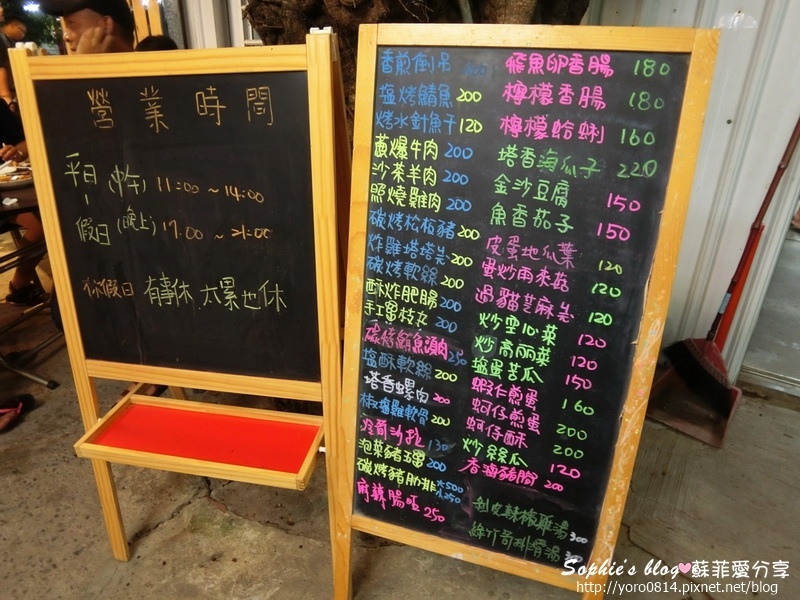 營業時間
平日 (中午) 11:00 ~ 14:00
假日 (晚上) 17:00 ~ 21:00
休假日 有事休、太累也休
香煎倒吊
塩烤鯖魚 200
烤水針魚干 120
蔥爆牛肉 200
沙茶羊肉 200
照燒雞肉 200
碳烤松板豬 200
炸雞塔塔醬 200
碳烤軟絲 200
酥炸肥腸 200
手工蛋枝丸 200
250
塩酥軟絲 200
塔香螺肉 200
椒塩雞軟骨 200
涼筍沙拉 130
泡菜豬五罩 200
碳烤豬肋排 500
250
麻辣腸旺 250
飛魚卵香腸 180
檸檬香腸 180
檸檬蛤蜊 160
塔香海瓜子 220
金沙豆腐 150
魚香茄子 150
皮蛋地瓜葉 120
蛋炒雨來菇 120
過貓芝麻醬 120
炒空心菜 120
炒高丽菜 120
塩蛋苦瓜 150
蝦仁煎蛋 160
蚵仔煎蛋 200
蚵仔酥 200
炒絲瓜 120
香滷豬腳 200
剝皮辣椒雞湯 300
綠竹筍排骨湯
Sophie's blog♥蘇菲愛分享
http://yoro0814.pixnet.net/blog